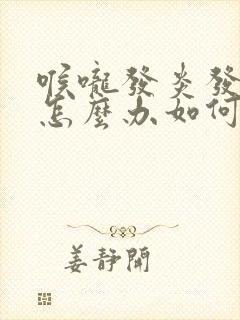 喉嚨發炎發
怎麼办,如何
姜静開